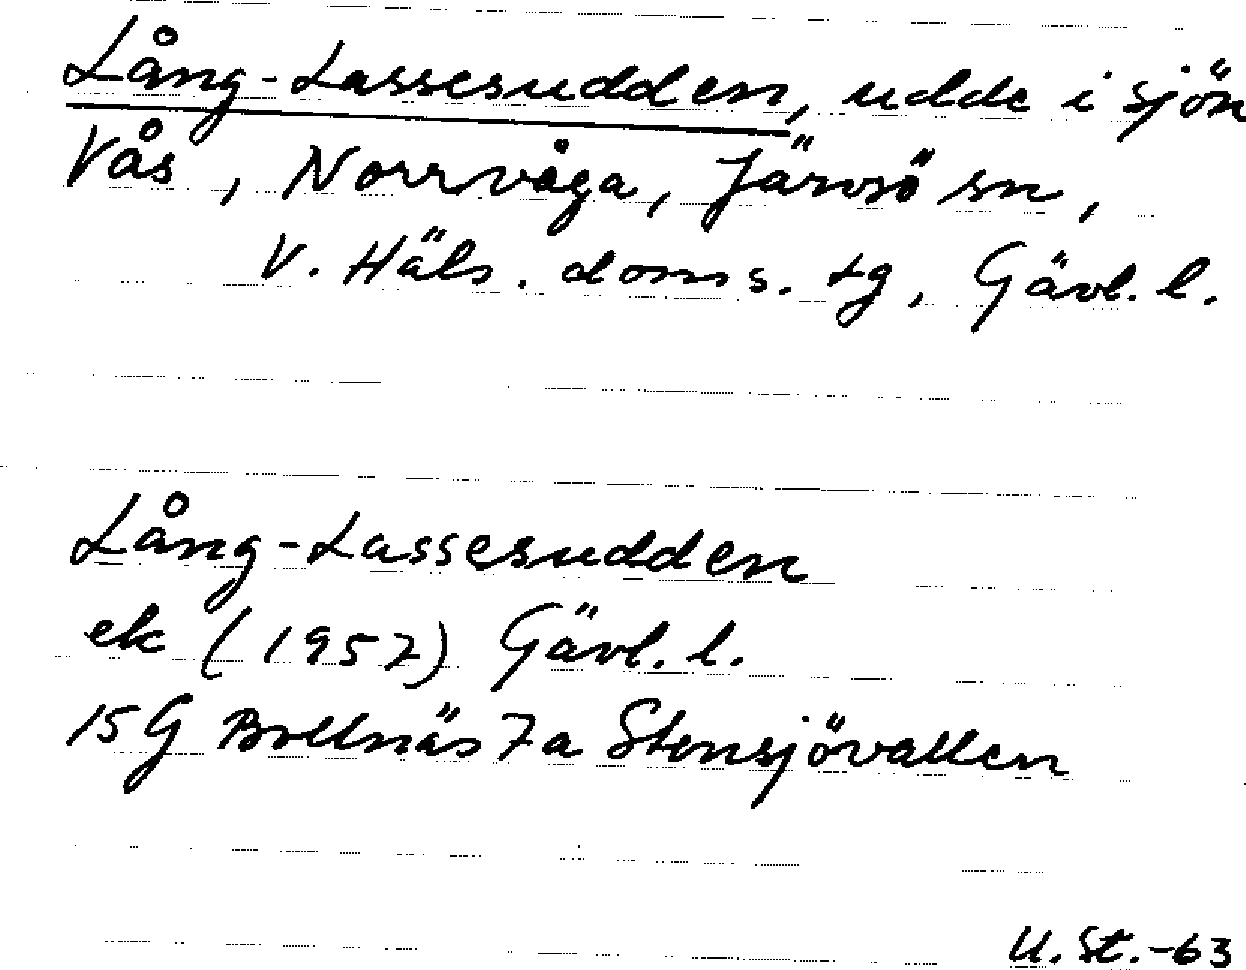 Lång-Lassesudden, udde i sjön
Vås, Norrvåga, Järvsö sn,
V. Häls. doms. tg, Gävl. l.
Lång-Lassesudden
ek (1957) Gävl. l.
15G Bollnäs 7a Stensjövallen
U. St. -63